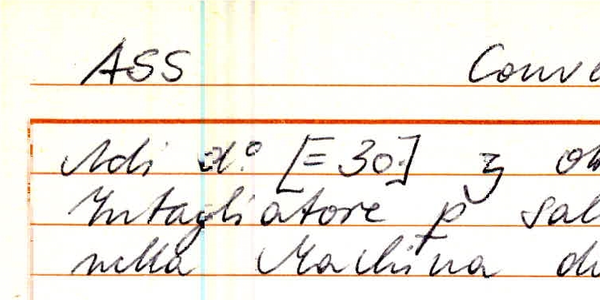 ASS Conve
Adi d.º [= 30] 3 ott
Intagliatore p sal
nella Machina di